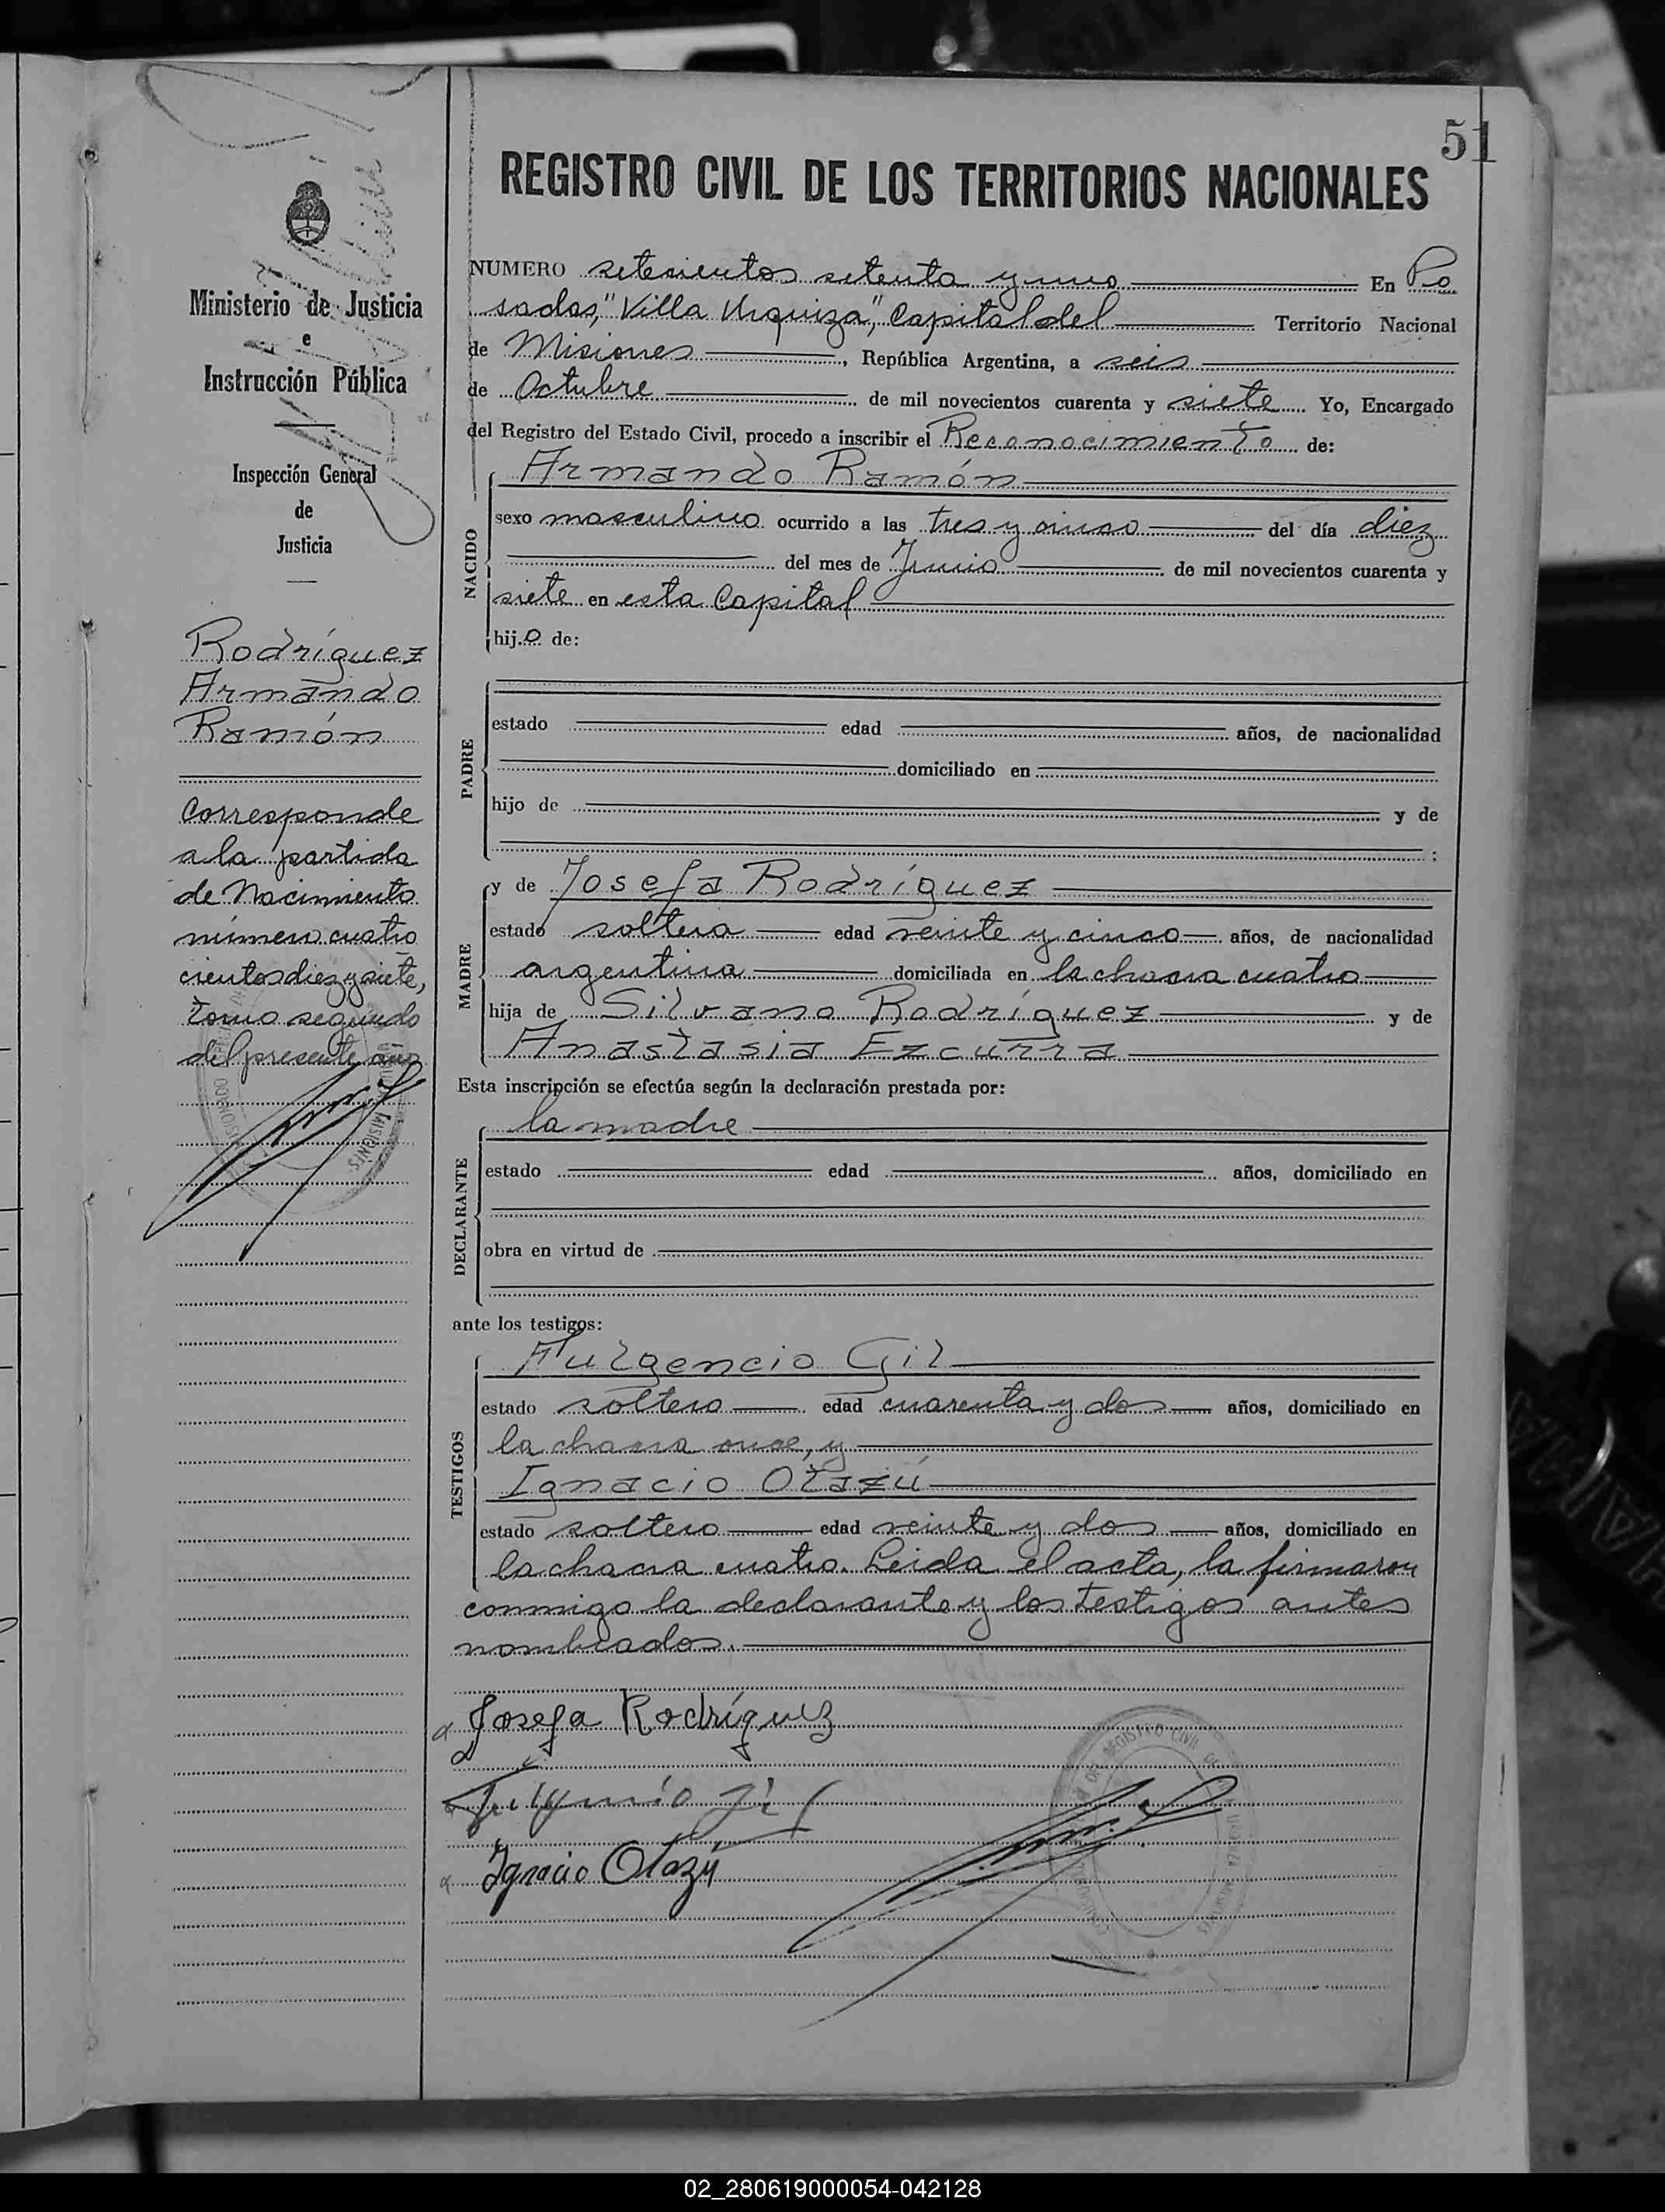 51
REGISTRO CIVIL DE LOS TERRITORIOS NACIONALES
Ministerio de Justicia
e
Instrucción Pública
Inspección General
de
Justicia
Rodríguez
Armando
Ramón
Corresponde
a la partida
de Nacimiento
número cuatro
cientos diez y siete,
tomo segundo
del presente año
NUMERO setecientos setenta y uno En Po
sadas, "Villa Urquiza", Capital del Territorio Nacional
de Misiones, República Argentina, a seis
de Octubre de mil novecientos cuarenta y siete Yo, Encargado
del Registro del Estado Civil, procedo a inscribir el Reconocimiento de:
NACIDO
Armando Ramón
sexo masculino ocurrido a las tres y cinco del día diez
del mes de Junio de mil novecientos cuarenta y
siete en esta Capital
hijo de:
PADRE
estado edad años, de nacionalidad
domiciliado en
hijo de y de
;
MADRE
y de Josefa Rodríguez
estado soltera edad veinte y cinco años, de nacionalidad
argentina domiciliada en la chacra cuatro
hija de Silvano Rodríguez y de
Anastasia Ezcurra
Esta inscripción se efectúa según la declaración prestada por:
DECLARANTE
la madre
estado edad años, domiciliado en
obra en virtud de
ante los testigos:
TESTIGOS
Fulgencio Gil
estado soltero edad cuarenta y dos años, domiciliado en
la chacra once, y
Ignacio Otazú
estado soltero edad veinte y dos años, domiciliado en
la chacra cuatro. Leida el acta, la firmaron
conmigo la declarante y los testigos antes
nombrados.
Josefa Rodríguez
Fulgencio Gil
Ignacio Otazú
02_280619000054-042128